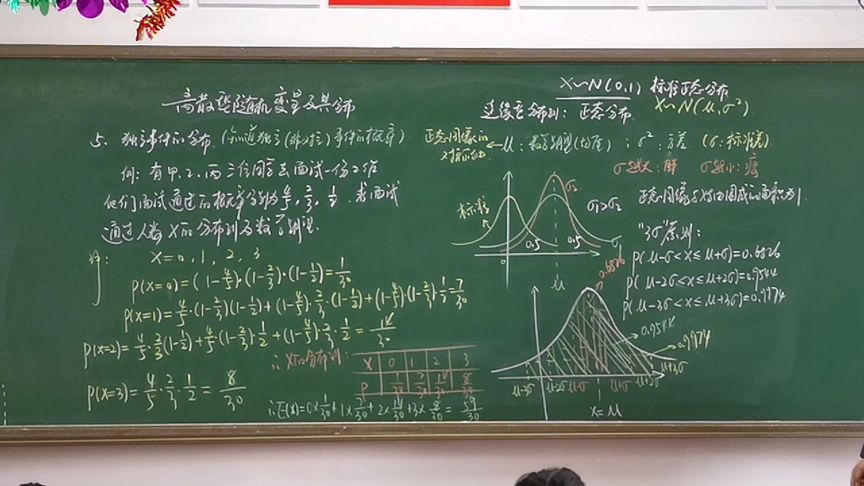 离散型随机变量及其分布
5、独立事件的分布（知道独立（非对立）事件的概率）
例：有甲、乙、丙三位同学去面试一份工作
他们面试通过的概率分别为4/5, 2/3, 1/2. 求面试
通过人数X的分布列及数学期望.
X=0, 1, 2, 3
P(X=0)=(1-4/5)·(1-2/3)·(1-1/2)=1/30
P(X=1)=4/5·(1-2/3)(1-1/2)+(1-4/5)·2/3·(1-1/2)+(1-4/5)·(1-2/3)·1/2=7/30
P(X=2)=4/5·2/3(1-1/2)+4/5·(1-2/3)·1/2+(1-4/5)·2/3·1/2=14/30
P(X=3)=4/5·2/3·1/2=8/30
∴X的分布列:
X 0 1 2 3
P 1/30 7/30 14/30 8/30
∴E(X)=0×1/30+1×7/30+2×14/30+3×8/30=59/30
X~N(0,1) 标准正态分布
连续型分布列: 正态分布 X~N(μ,σ²)
正态图像的对称轴 ← μ: 数学期望(均值); σ²: 方差 (σ: 标准差)
σ越大: 胖 σ越小: 瘦
正态图像与X轴围成的面积为1
标准
σ₂
σ₁>σ₂
0.5 0.5
σ₁
0
μ
"3σ"原则:
P(μ-σ<X≤μ+σ)=0.6826
P(μ-2σ<X≤μ+2σ)=0.9544
P(μ-3σ<X≤μ+3σ)=0.9974
0.6826
0.9544
0.9974
μ-3σ μ-2σ μ-σ μ+σ μ+2σ μ+3σ
X=μ